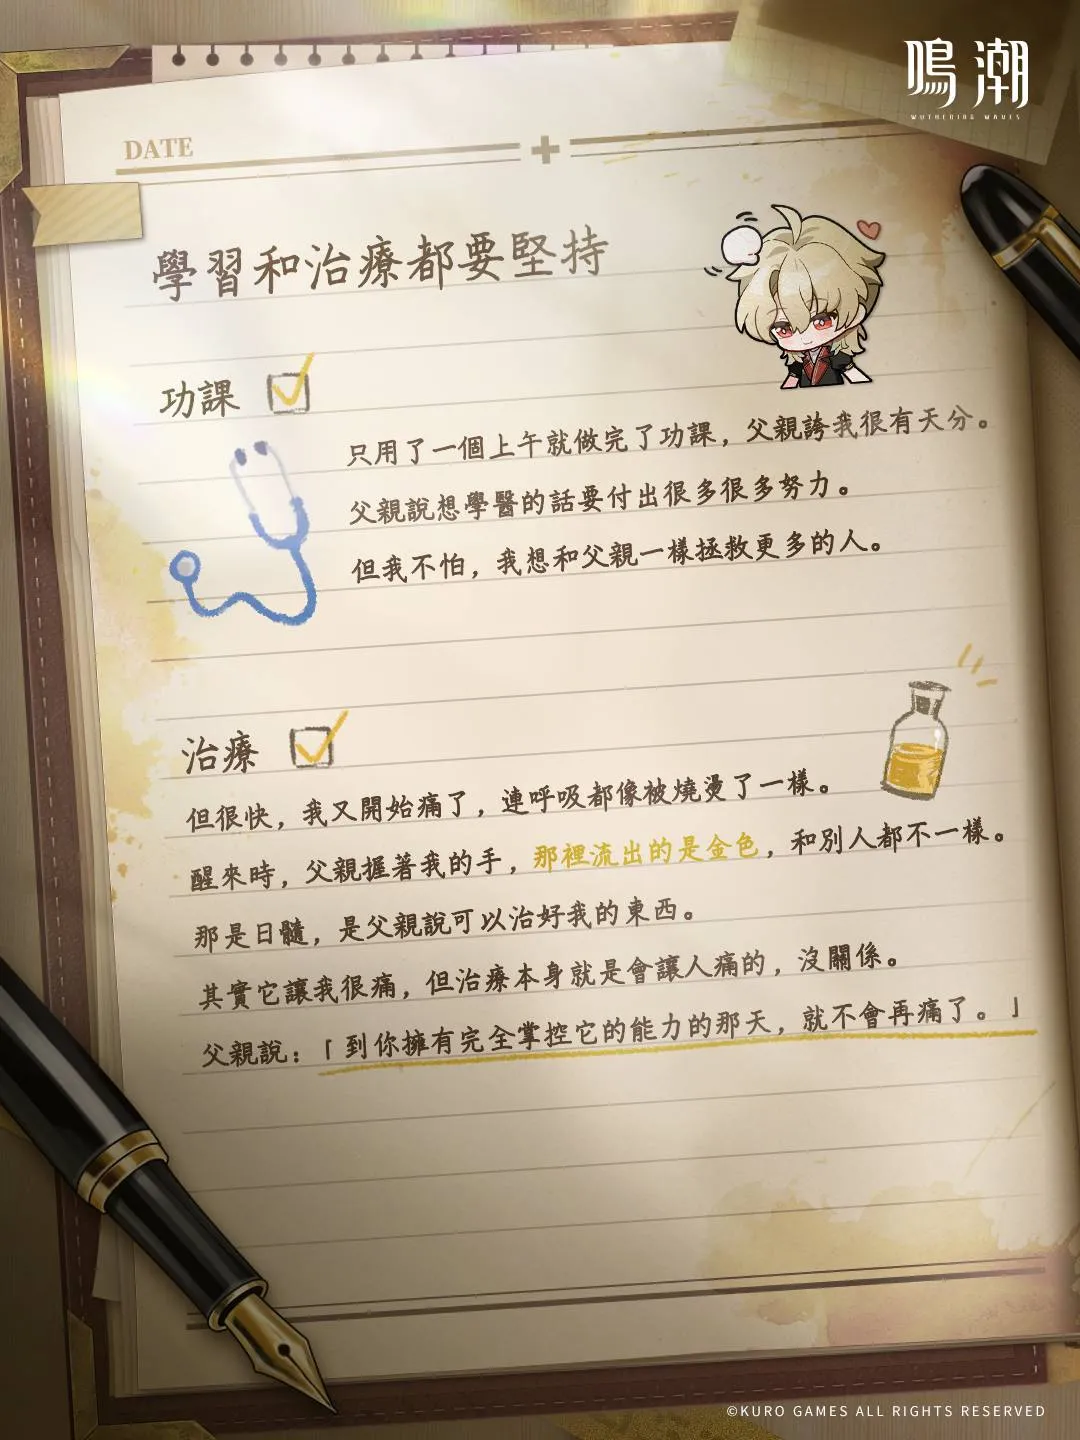 鳴潮
WUTHERING WAVES
DATE
學習和治療都要堅持
功課
只用了一個上午就做完了功課，父親誇我很有天分。
父親說想學醫的話要付出很多很多努力。
但我不怕，我想和父親一樣拯救更多的人。
治療
但很快，我又開始痛了，連呼吸都像被燒燙了一樣。
醒來時，父親握著我的手，那裡流出的是金色，和別人都不一樣。
那是日髓，是父親說可以治好我的東西。
其實它讓我很痛，但治療本身就是會讓人痛的，沒關係。
父親說：「到你擁有完全掌控它的能力的那天，就不會再痛了。」
©KURO GAMES ALL RIGHTS RESERVED